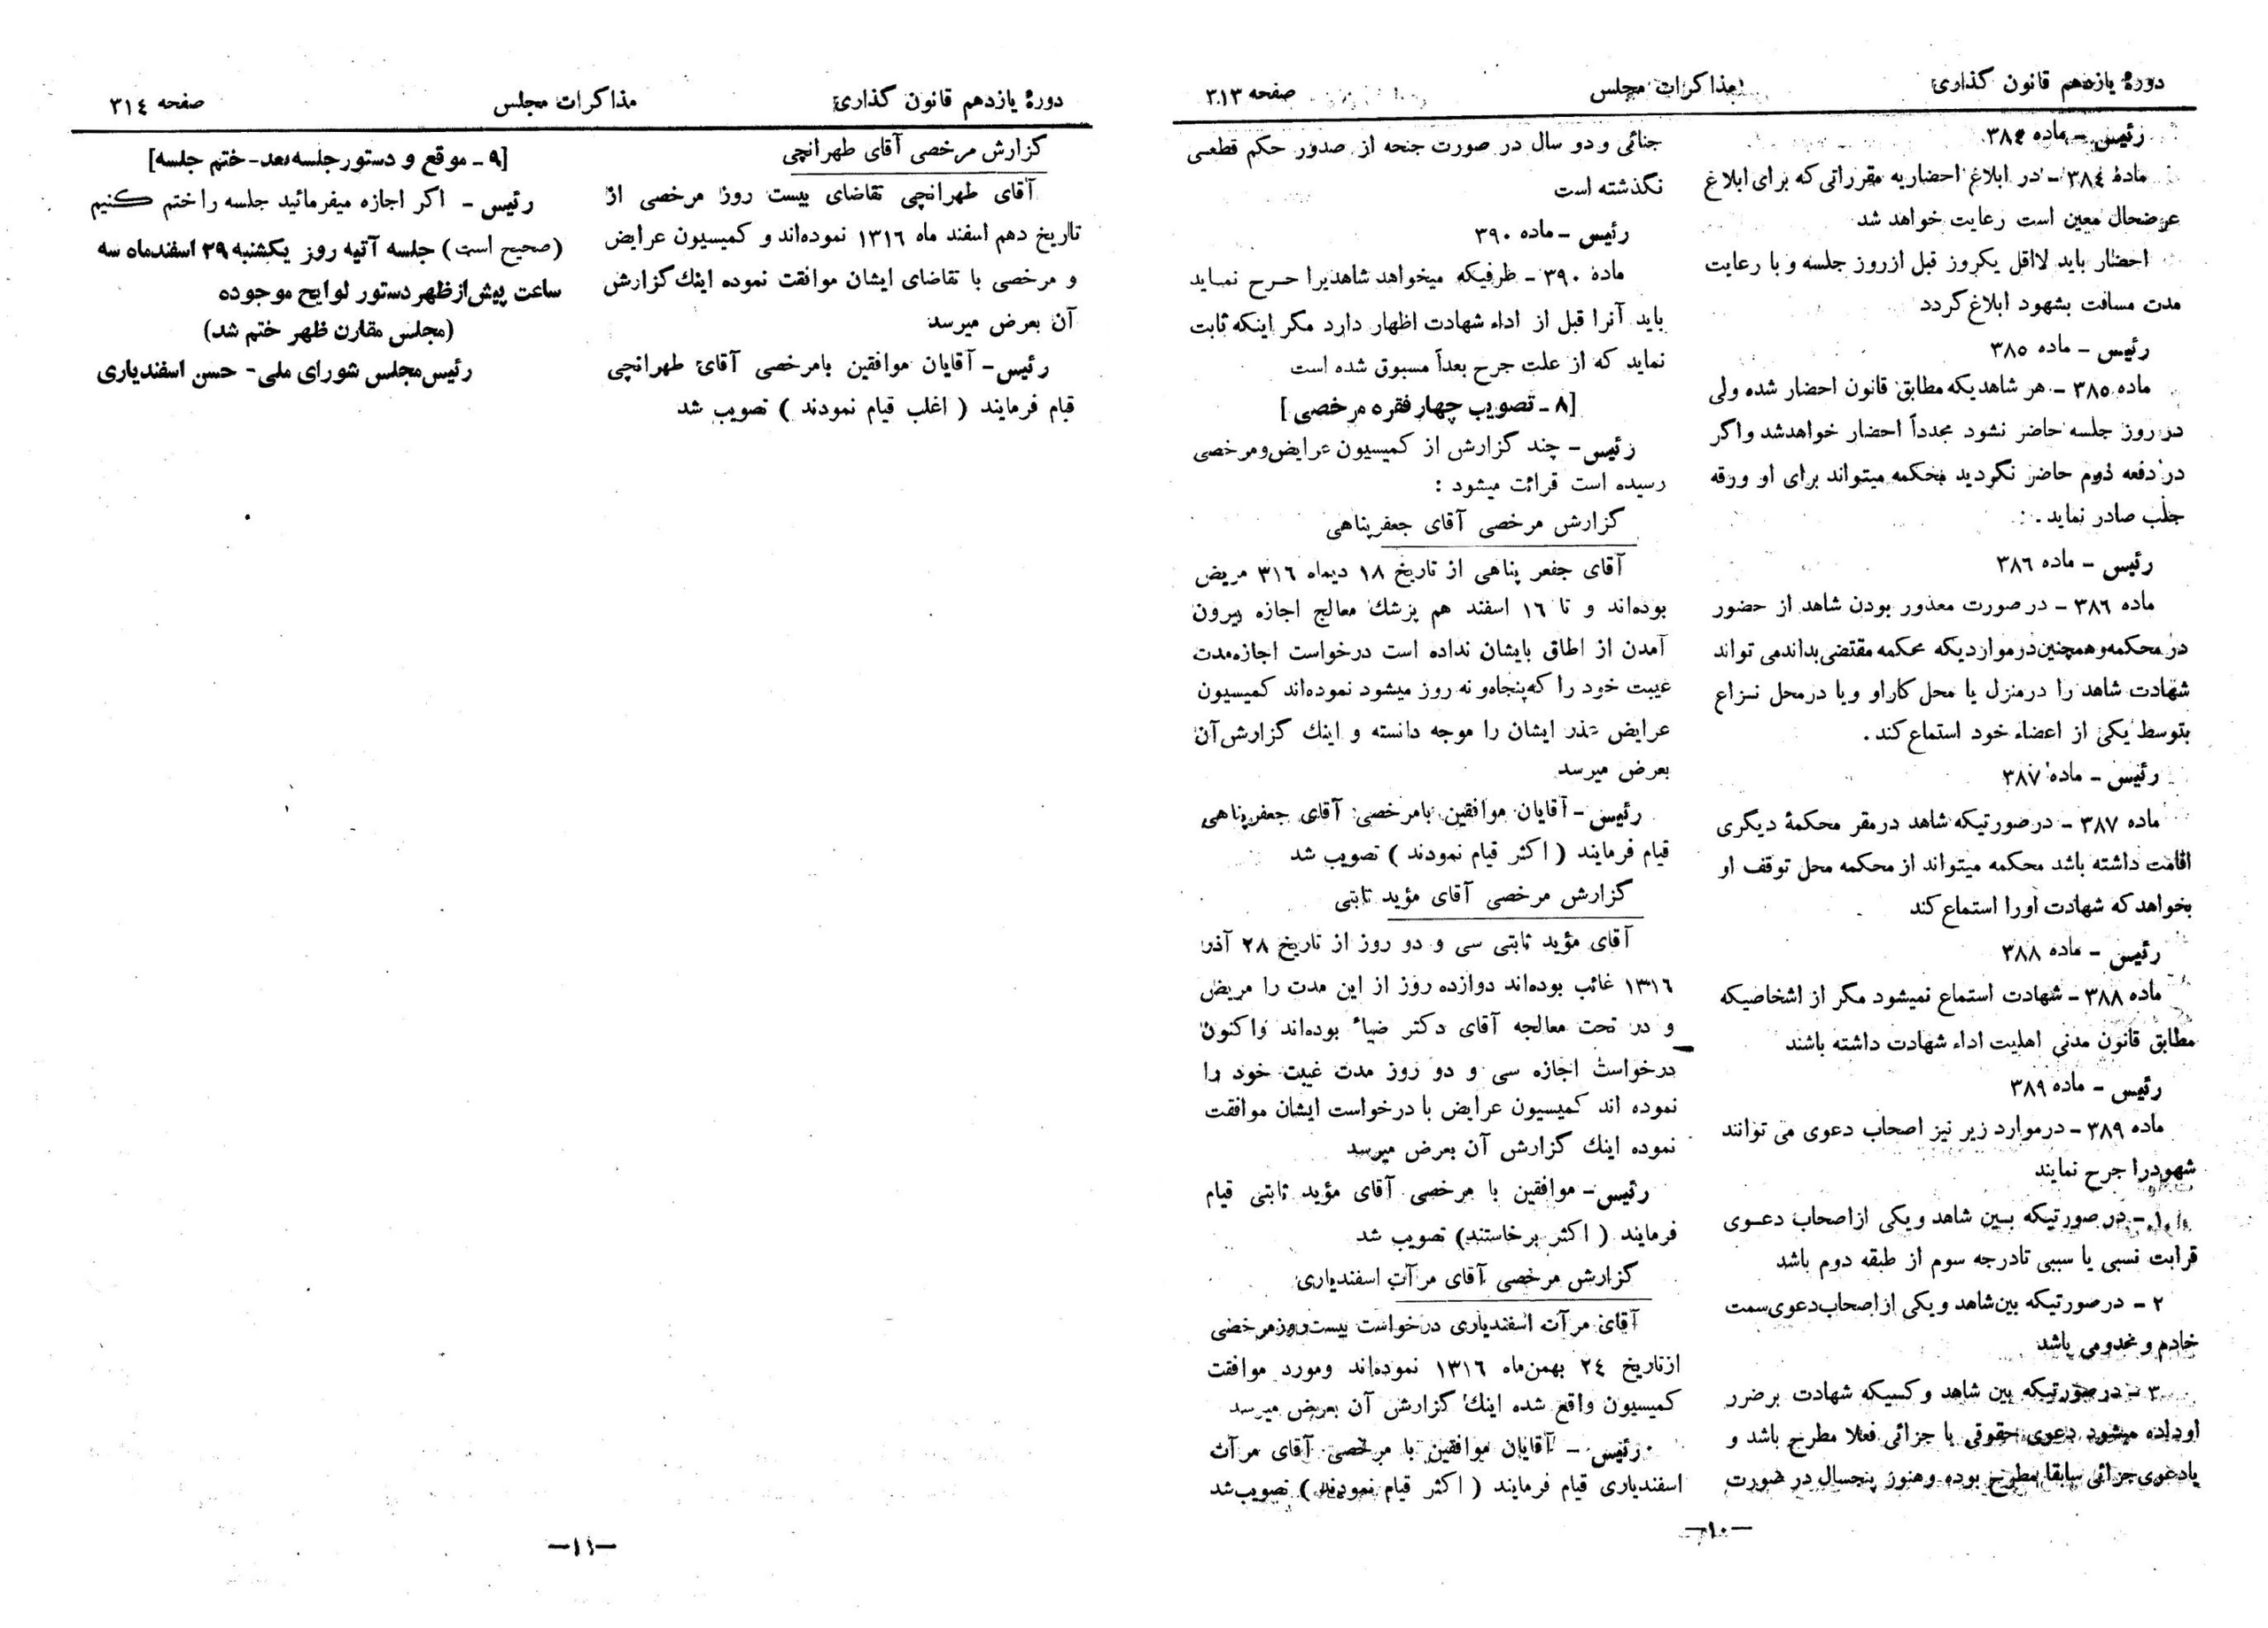 دورهٔ یازدهم قانون گذاری
مذاکرات مجلس
صفحه ۳۱۳
رئیس – ماده ۳۸٤
مادهٔ ۳۸٤ – در ابلاغ احضاریه مقرراتی که برای ابلاغ
عرضحال معین است رعایت خواهد شد
احضار باید لااقل یکروز قبل ازروز جلسه و با رعایت
مدت مسافت بشهود ابلاغ گردد
رئیس – ماده ۳۸۵
ماده ۳۸۵ – هر شاهدیکه مطابق قانون احضار شده ولی
در روز جلسه حاضر نشود مجدداً احضار خواهدشد واگر
در دفعه دوم حاضر نگردید محکمه میتواند برای او ورقه
جلب صادر نماید.
رئیس – ماده ۳۸٦
ماده ۳۸٦ – در صورت معذور بودن شاهد از حضور
در محکمه وهمچنین درمواردیکه محکمه مقتضی بداند می تواند
شهادت شاهد را درمنزل یا محل کاراو ویا درمحل نزاع
بتوسط یکی از اعضاء خود استماع کند.
رئیس – ماده ۳۸۷
ماده ۳۸۷ – درصورتیکه شاهد درمقر محکمهٔ دیگری
اقامت داشته باشد محکمه میتواند از محکمه محل توقف او
بخواهد که شهادت اورا استماع کند
رئیس – ماده ۳۸۸
ماده ۳۸۸ – شهادت استماع نمیشود مگر از اشخاصیکه
مطابق قانون مدنی اهلیت اداء شهادت داشته باشند
رئیس – ماده ۳۸۹
ماده ۳۸۹ – درموارد زیر نیز اصحاب دعوی می توانند
شهودرا جرح نمایند
۱ – در صورتیکه بین شاهد و یکی ازاصحاب دعوی
قرابت نسبی یا سببی تادرجه سوم از طبقه دوم باشد
۲ – درصورتیکه بین شاهد و یکی ازاصحاب دعوی سمت
خادم و مخدومی باشد
۳ – درصورتیکه بین شاهد و کسیکه شهادت بر ضرر
اوداده میشود دعوی حقوقی یا جزائی فعلا مطرح باشد و
یادعوی جزائی سابقا مطرح بوده وهنوز پنجسال در صورت
جنائی و دو سال در صورت جنحه از صدور حکم قطعی
نگذشته است
رئیس – ماده ۳۹۰
مادهٔ ۳۹۰ – ظرفیکه میخواهد شاهدیرا جرح نماید
باید آنرا قبل از اداء شهادت اظهار دارد مگر اینکه ثابت
نماید که از علت جرح بعداً مسبوق شده است
[۸ – تصویب چهار فقره مرخصی]
رئیس – چند گزارش از کمیسیون عرایض ومرخصی
رسیده است قرائت میشود :
گزارش مرخصی آقای جعفرپناهی
آقای جفعر پناهی از تاریخ ۱۸ دیماه ۳۱٦ مریض
بوده‌اند و تا ۱٦ اسفند هم پزشك معالج اجازه بیرون
آمدن از اطاق بایشان نداده است درخواست اجازه مدت
غیبت خود را که پنجاه و نه روز میشود نموده‌اند کمیسیون
عرایض عذر ایشان را موجه دانسته و اینك گزارش آن
بعرض میرسد
رئیس – آقایان موافقین بامرخصی آقای جعفرپناهی
قیام فرمایند ( اکثر قیام نمودند ) تصویب شد
گزارش مرخصی آقای مؤید ثابتی
آقای مؤید ثابتی سی و دو روز از تاریخ ۲۸ آذر
۱۳۱٦ غائب بوده‌اند دوازده روز از این مدت را مریض
و در تحت معالجه آقای دکتر ضیاء بوده‌اند واکنون
درخواست اجازه سی و دو روز مدت غیبت خود را
نموده اند کمیسیون عرایض با درخواست ایشان موافقت
نموده اینك گزارش آن بعرض میرسد
رئیس – موافقین با مرخصی آقای مؤید ثابتی قیام
فرمایند ( اکثر برخاستند) تصویب شد
گزارش مرخصی آقای مرآت اسفندیاری
آقای مرآت اسفندیاری درخواست بیست روزمرخصی
ازتاریخ ۲٤ بهمن‌ماه ۱۳۱٦ نموده‌اند ومورد موافقت
کمیسیون واقع شده اینك گزارش آن بعرض میرسد
رئیس – آقایان موافقین با مرخصی آقای مرآت
اسفندیاری قیام فرمایند ( اکثر قیام نمودند ) تصویب شد
–۱۰–
دورهٔ یازدهم قانون گذاری
مذاکرات مجلس
صفحه ۳۱٤
گزارش مرخصی آقای طهرانچی
آقای طهرانچی تقاضای بیست روز مرخصی از
تاریخ دهم اسفند ماه ۱۳۱٦ نموده‌اند و کمیسیون عرایض
و مرخصی با تقاضای ایشان موافقت نموده اینك گزارش
آن بعرض میرسد
رئیس – آقایان موافقین بامرخصی آقای طهرانچی
قیام فرمایند ( اغلب قیام نمودند ) تصویب شد
[۹ – موقع و دستور جلسه بعد – ختم جلسه]
رئیس – اگر اجازه میفرمائید جلسه را ختم کنیم
(صحیح است) جلسه آتیه روز یکشنبه ۲۹ اسفندماه سه
ساعت پیش از ظهر دستور لوایح موجوده
(مجلس مقارن ظهر ختم شد)
رئیس مجلس شورای ملی – حسن اسفندیاری
–۱۱–